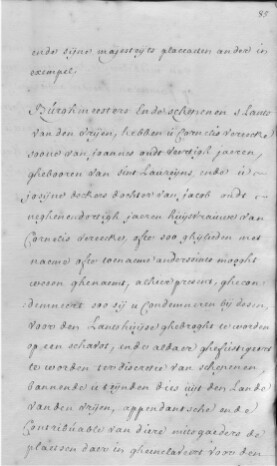 85
ende sijne majesteyts placcaten ander in
exempel,
Burghmeesters Ende schepenen s Lants
van den vrijen, hebben u Cornelis vereecke
soone van joannes oudt veertigh jaeren,
ghebooren van sint Laureijns, ende u
josijne deckers dochter van jacob oudt
neghenendertigh jaeren huijsvrauwe van
Cornelis vereecke, ofte soo ghijlieden met
naeme ofte toenaeme anderssints moght
wesen ghenaemt, alhier present, ghecon-
demneert soo sij u Condemneren bij desen,
voor den Landthuijse ghebroght te worden
op een schavot, ende aldaer ghefustigeert
te worden ter discretie van schepenen,
bannende u tijnden dies uijt den Lande
vanden vrijen, appendantsche ende
Contribuable van diere mitsgaeders de
plaetsen daer in gheenclaveert voor den